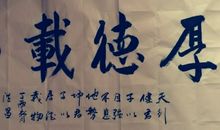 厚德載
天行
健君
子以
自強
不息
地勢
坤君
子以
厚德
載物